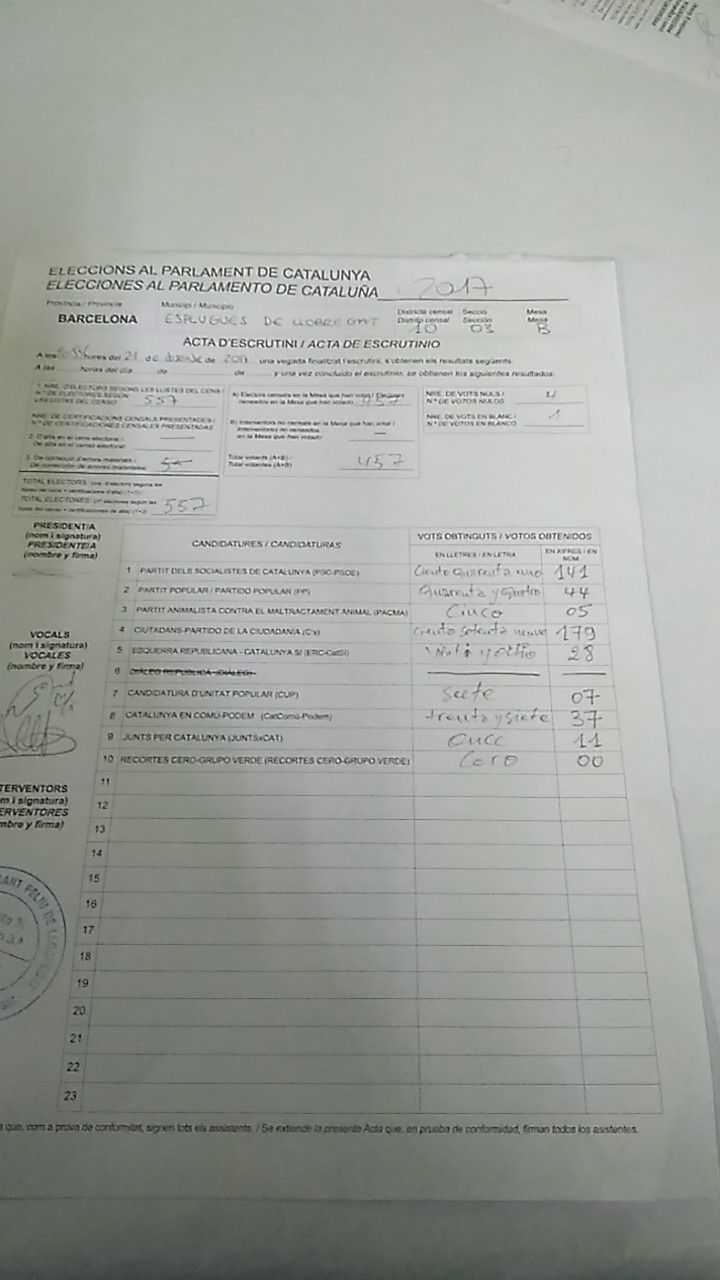 ELECCIONS AL PARLAMENT DE CATALUNYA
ELECCIONES AL PARLAMENTO DE CATALUÑA 2017
Provincia / Provincia Municipi / Municipio Districte censal Secció Mesa
Distrito censal Sección Mesa
BARCELONA ESPLUGUES DE LLOBREGAT 10 03 B
ACTA D'ESCRUTINI / ACTA DE ESCRUTINIO
A les hores del 21 de de 2017 una vegada finalitzat l'escrutini, s'obtenen els resultats següents:
A las horas del día de de y una vez concluido el escrutinio, se obtienen los siguientes resultados:
1. NRE. D'ELECTORS SEGONS LES LLISTES DEL CENS /
N.º DE ELECTORES SEGÚN
LAS LISTAS DEL CENSO 557
NRE. DE CERTIFICACIONS CENSALS PRESENTADES /
N.º CERTIFICACIONES CENSALES PRESENTADAS
2. D'alta en el cens electoral:
De alta en el censo electoral:
3. De correcció d'errors materials:
De corrección de errores materiales:
TOTAL ELECTORS:
TOTAL ELECTORES: 557
A) Electors censats en la Mesa que han votat / Electores
censados en la Mesa que han votado: 457
B) Interventors no censats en la Mesa que han votat /
Interventores no censados
en la Mesa que han votado: —
Total votants (A+B):
Total votantes (A+B): 457
NRE. DE VOTS NULS /
N.º DE VOTOS NULOS 4
NRE. DE VOTS EN BLANC /
N.º DE VOTOS EN BLANCO 1
PRESIDENT/A
(nom i signatura)
PRESIDENTE/A
(nombre y firma)
CANDIDATURES / CANDIDATURAS VOTS OBTINGUTS / VOTOS OBTENIDOS
EN LLETRES / EN LETRA EN XIFRES / EN NÚM.
1 PARTIT DELS SOCIALISTES DE CATALUNYA (PSC-PSOE) Ciento Cuarenta uno 141
2 PARTIT POPULAR / PARTIDO POPULAR (PP) Cuarenta y cuatro 44
3 PARTIT ANIMALISTA CONTRA EL MALTRACTAMENT ANIMAL (PACMA) Cinco 05
4 CIUTADANS-PARTIDO DE LA CIUDADANÍA (C's) Ciento setenta nueve 179
5 ESQUERRA REPUBLICANA - CATALUNYA SÍ (ERC-CatSí) 28
6 DIÀLEG REPÚBLICA (DIÀLEG)
7 CANDIDATURA D'UNITAT POPULAR (CUP) Siete 07
8 CATALUNYA EN COMÚ-PODEM (CatComú-Podem) treinta y siete 37
9 JUNTS PER CATALUNYA (JUNTSxCAT) Once 11
10 RECORTES CERO-GRUPO VERDE (RECORTES CERO-GRUPO VERDE) Cero 00
VOCALS
(nom i signatura)
VOCALES
(nombre y firma)
TERVENTORS
m i signatura)
ERVENTORES
mbre y firma)
11
12
13
14
15
16
17
18
19
20
21
22
23
SANT FELIU DE LLOBREGAT
que, com a prova de conformitat, signen tots els assistents. / Se extiende la presente Acta que, en prueba de conformidad, firman todos los asistentes.